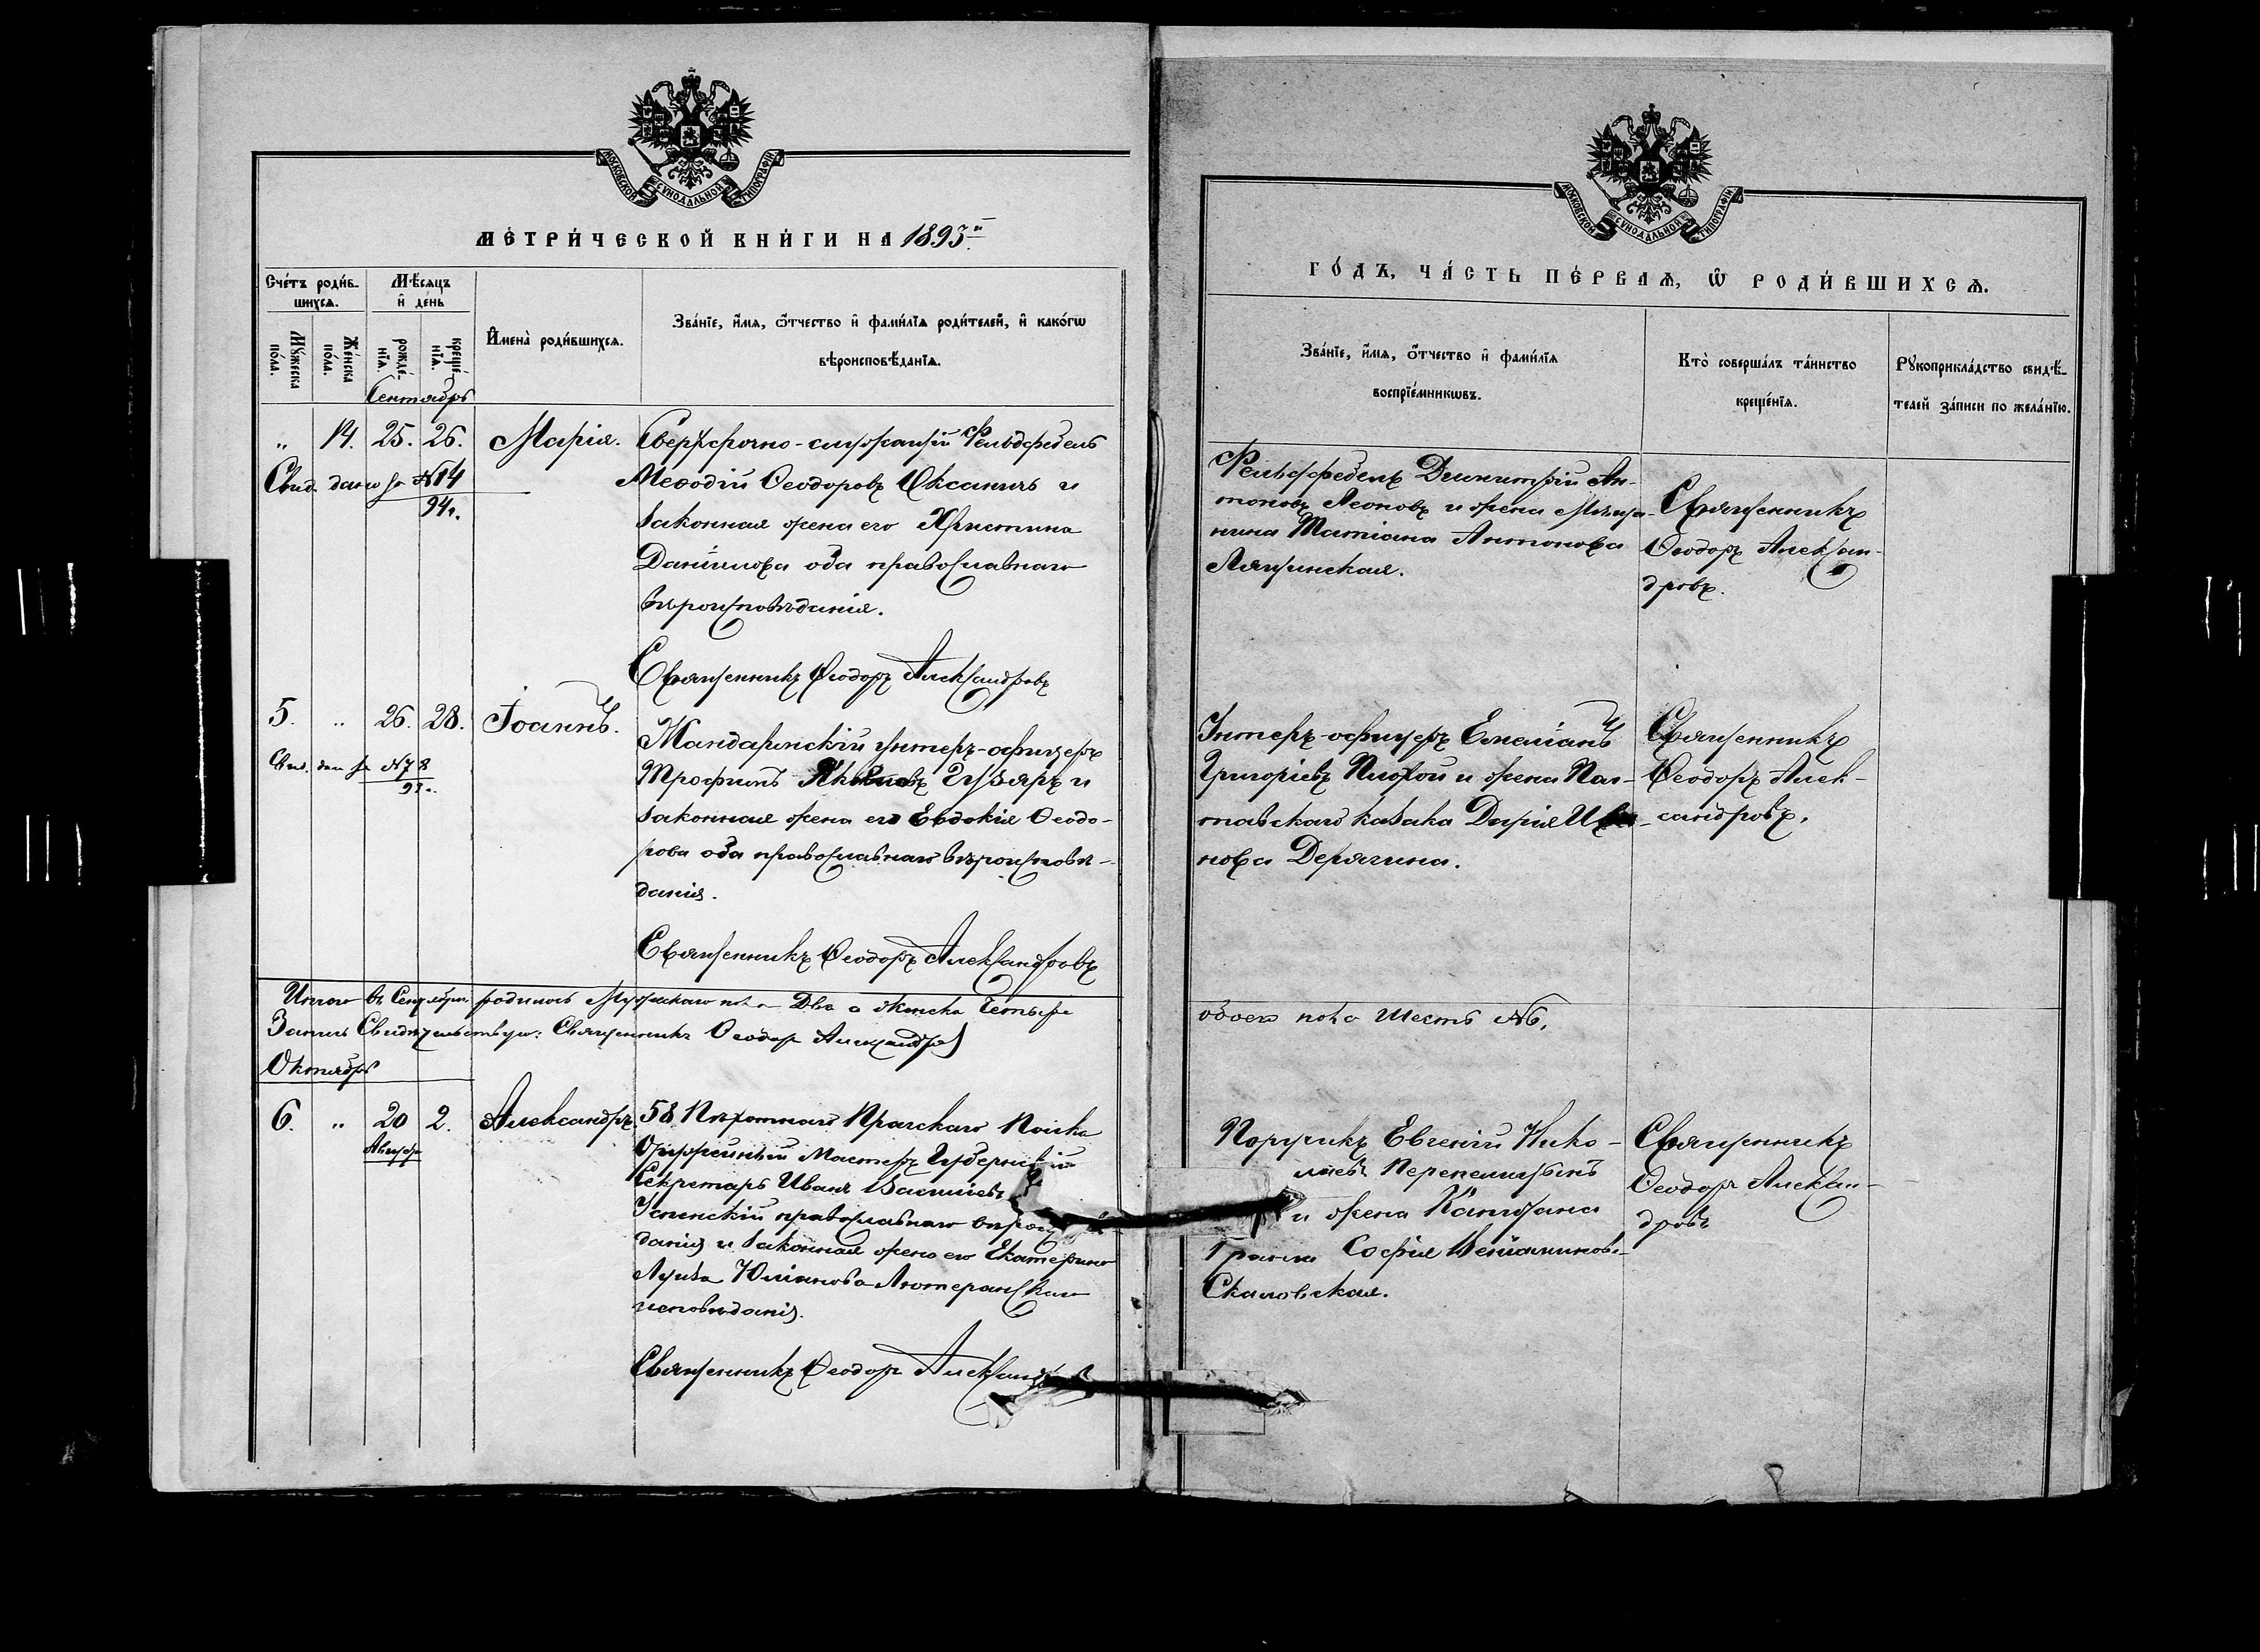 МОСКОВСКОЙ СУНОДАЛЬНОЙ ТИПОГРАФІИ
МЕТРИЧЕСКОЙ КНИГИ НА 1893й
Счетъ родив-
шихся.
Мѣсяцъ
и день
Имена родившихся.
Званіе, имя, отчество и фамилія родителей, и какогѡ
вѣроисповѣданія.
Мужеска
пола.
Женска
пола.
рожде-
нія.
креще-
нія.
Сентябрь
„ 14. 25. 26. Марія. Сверхсрочно-служащій Фельдфебель
Свид. дано за №14
94г.
Меѳодій Ѳеодоровъ и
законная жена его Христина
Даніилова оба православнаго
вѣроисповѣданія.
Священникъ Ѳеодоръ Александровъ
5. „ 26. 28. Іоаннъ. Жандармскій унтеръ-офицеръ
Свид. дан за №78
Трофимъ и
законная жена его Евдокія Ѳеодо-
рова оба православнаго вѣроисповѣ-
данія.
Священникъ Ѳеодоръ Александровъ
Итого въ Сентябрѣ родилось Мужскаго пола Два а женска Четыре
Запись Свидѣтельствую: Священникъ Ѳеодоръ Александров
Октябрь
6. „ 20 2. Александръ. 58 Пѣхотнаго Прагскаго Полка
Августа
Оружейный Мастеръ Губернскій
Секретарь Иванъ Васильевъ
православнаго вѣрои
данія и законная жена его Екатерина
Луиза Юліанова Лютеранскаго
исповѣданія.
Священникъ Ѳеодоръ Алексан
МОСКОВСКОЙ СУНОДАЛЬНОЙ ТИПОГРАФІИ
ГОДЪ, ЧАСТЬ ПЕРВАЯ, Ѡ РОДИВШИХСЯ.
Званіе, имя, отчество и фамилія
воспріемникѡвъ.
Кто совершалъ таинство
крещенія.
Рукоприкладство свидѣ-
телей записи по желанію.
Фельдфебель Димитрій Ан-
тоновъ Леоновъ и жена Мѣща-
нина Татіана Антонова
Священникъ
Ѳеодоръ Алексан-
дровъ.
Унтеръ-офицеръ Емеліанъ
Григорьевъ и жена Пол-
тавскаго казака Дарія Ива-
нова Дерягина.
Священникъ
Ѳеодоръ Алек-
сандровъ.
обоего пола шесть №6.
Поручикъ Евгеній Нико-
лаевъ Перепелицынъ
и жена Капитана
Софія Веніаминова
Скаловская.
Священникъ
Ѳеодоръ Алексан-
дровъ